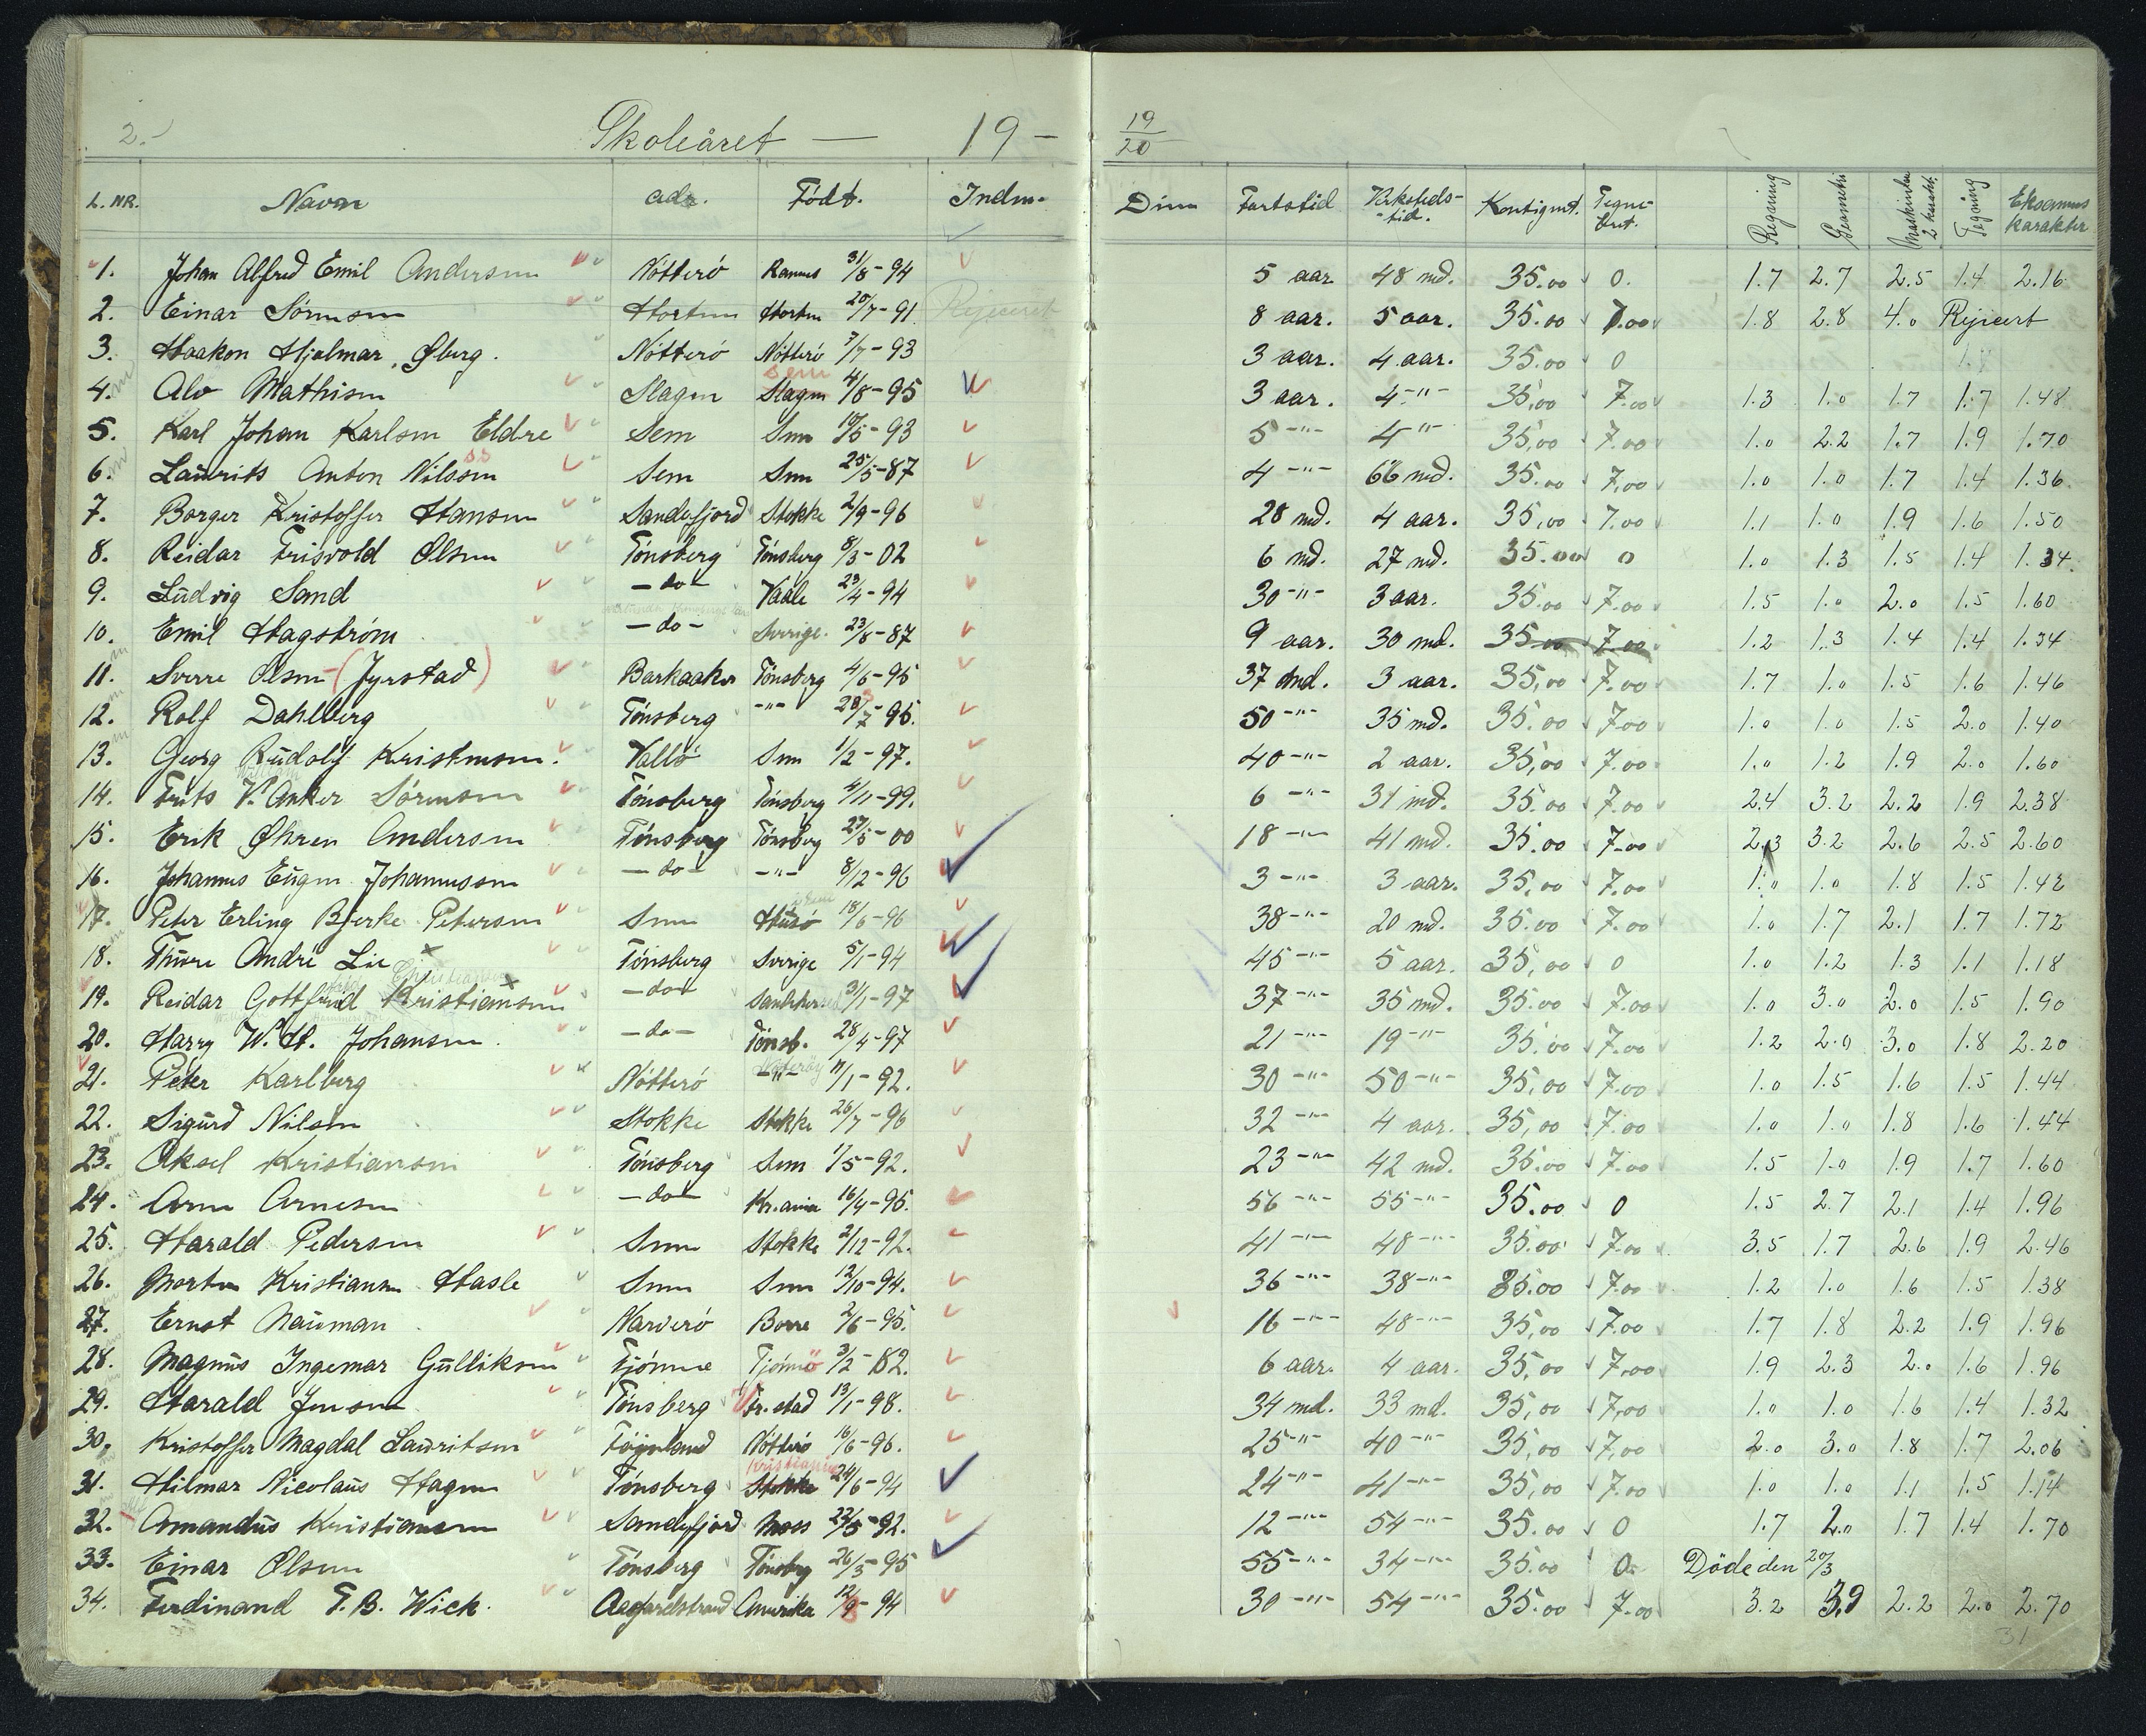 2. Skoleåret — 19 - 19/20
L. NR. Navn adr. Født. Indm. Dim Fartstid Verksteds-tid. Kontigent. Tegne-best. Regning Geometri Maskinlære Tegning Eksamens karakter
1. Johan Alfred Emil Andersen Nötterö Ramnes 31/8-94 5 aar. 48 md. 35.00 0. 1.7 2.7 2.5 1.4 2.16
2. Einar Sörensen Horten Horten 20/7-91 Rejiceret 8 aar. 5 aar. 35.00 7.00 1.8 2.8 4.0 Rejicert
3. Haakon Hjalmar Øberg. Nötterö Nötterö 7/7-93 3 aar. 4 aar. 35.00 0
4. Alv Mathisen Slagen Slagen Sem 4/8-95 3 aar. 4-"- 35,00 7.00 1.3 1.0 1.7 1.7 1.48
5. Karl Johan Karlsen Eldre Sem Sem 10/5-93 5-"- 4" 35,00 7.00 1.0 2.2 1.7 1.9 1.70
6. Laurits Anton Nilssen Sem Sem 25/5-87 4-"- 66 md. 35.00 7,00 1.0 1.0 1.7 1.4 1.36.
7. Borger Kristoffer Hansen Sandefjord Stokke 2/9-96 28 md. 4 aar. 35,00 7.00 1.1 1.0 1.9 1.6 1.50
8. Reidar Frisvold Olsen Tönsberg Tönsberg 8/3-02 6 md. 27 md. 35.00 0 1.0 1.3 1.5 1.4 1.34.
9. Ludvig Sand -do- Vaale 23/4-94 30-"- 3 aar. 35.00 7.00 1.5 1.0 2.0 1.5 1.60
10. Emil Hagström -do- Sverige. 23/8-87 9 aar. 30 md. 35.00 7.00 1.2 1.3 1.4 1.4 1.34
11. Sverre Olsen (Jyrstad) Barkaaker Tönsberg 4/6-95 37 md. 3 aar. 35,00 7.00 1.7 1.0 1.5 1.6 1.46
12. Rolf Dahlberg Tönsberg -"- 28/7-95. 50-"- 35 md. 35.00 7.00 1.0 1.0 1.5 2.0 1.40
13. Georg Rudolf Kristensen. Vallö Sem 1/2-97. 40-"- 2 aar. 35,00 7.00 1.0 1.2 1.9 2.0 1.60
14. Frits V. Anker Sörensen Tönsberg Tönsberg 4/11-99. 6-"- 31 md. 35.00 7.00 2.4 3.2 2.2 1.9 2.38
15. Erik Øhren Andersen Tönsberg Tönsberg 27/5-00 18-"- 41 md. 35.00 7.00 2.3 3.2 2.6 2.5 2.60
16. Johannes Eugen Johannessen -do- -"- 8/12-96 3-"- 3 aar. 35,00 7.00 1.0 1.0 1.8 1.5 1.42
17. Peter Erling Bjerke Petersen Sem Husö 18/6-96 38-"- 20 md. 35.00 7.00 1.0 1.7 2.1 1.7 1.72
18. Thure André Lie x Tönsberg Sverige 5/1-94 45-"- 5 aar. 35,00 0 1.0 1.2 1.3 1.1 1.18
19. Reidar Gottfried Kristiansen -do- Sandeherred 3/1-97 37-"- 35 md. 35.00 7.00 1.0 3.0 2.0 1.5 1.90
20. Harry W. H. Johansen -do- Tönsb. 28/4-97 21-"- 19-"- 35.00 7.00 1.2 2.0 3.0 1.8 2.20
21. Peter Karlberg Nötterö -"- Nøterøy 11/1-92. 30-"- 50-"- 35,00 7.00 1.0 1.5 1.6 1.5 1.44
22. Sigurd Nilsen Stokke Stokke 26/7-96 32-"- 4 aar. 35,00 7.00 1.0 1.0 1.8 1.6 1.44
23. Aksel Kristiansen Tönsberg Sem 1/5-92. 23-"- 42 md. 35.00 7.00 1.5 1.0 1.9 1.7 1.60
24. Arne Arnesen -do- Kr.ania 16/4-95. 56-"- 55-"- 35.00 0 1.5 2.7 2.1 1.4 1.96
25. Harald Pedersen Sem Stokke 2/12-92. 41-"- 48-"- 35.00 7.00 3.5 1.7 2.6 1.9 2.46
26. Morten Kristiansen Hasle Sem Sem 12/10-94. 36-"- 38-"- 35.00 7.00 1.2 1.0 1.6 1.5 1.38
27. Ernst Nauman Narverö Borre 2/6-95. 16-"- 48-"- 35,00 7.00 1.7 1.8 2.2 1.9 1.96
28. Magnus Ingemar Gulliksen Tjömne Tjömö 3/2-82. 6 aar. 4 aar. 35,00 7,00 1.9 2.3 2.0 1.6 1.96
29. Harald Jensen Tönsberg Fr.stad 13/1-98. 34 md. 33 md. 35,00 7,00 1.0 1.0 1.6 1.4 1.32
30. Kristoffer Magdal Lauritsen Föynland Nötterö 16/6-96. 25-"- 40-"- 35,00 7,00 2.0 3.0 1.8 1.7 2.06
31. Hilmar Nicolaus Hagen Tönsberg Stokke Kristiania 24/6-94 24-"- 41-"- 35,00 7.00 1.0 1.0 1.1 1.5 1.14
32. Amandus Kristiansen Sandefjord Moss 22/5-92. 12-"- 54-"- 35.00 0 1.7 2.0 1.7 1.4 1.70
33. Einar Olsen Tönsberg Tönsberg 26/3-95 55-"- 34-"- 35.00 0. Döde den 20/3
34. Ferdinand T. B. Wick. Aasgardstrand Amerika 12/8-94 30-"- 54-"- 35.00 7.00 3.2 3.9 2.2 2.0 2.70
31